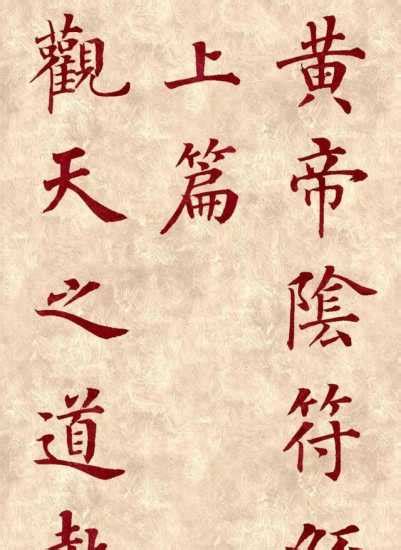 黄帝陰符
上篇
觀天之道